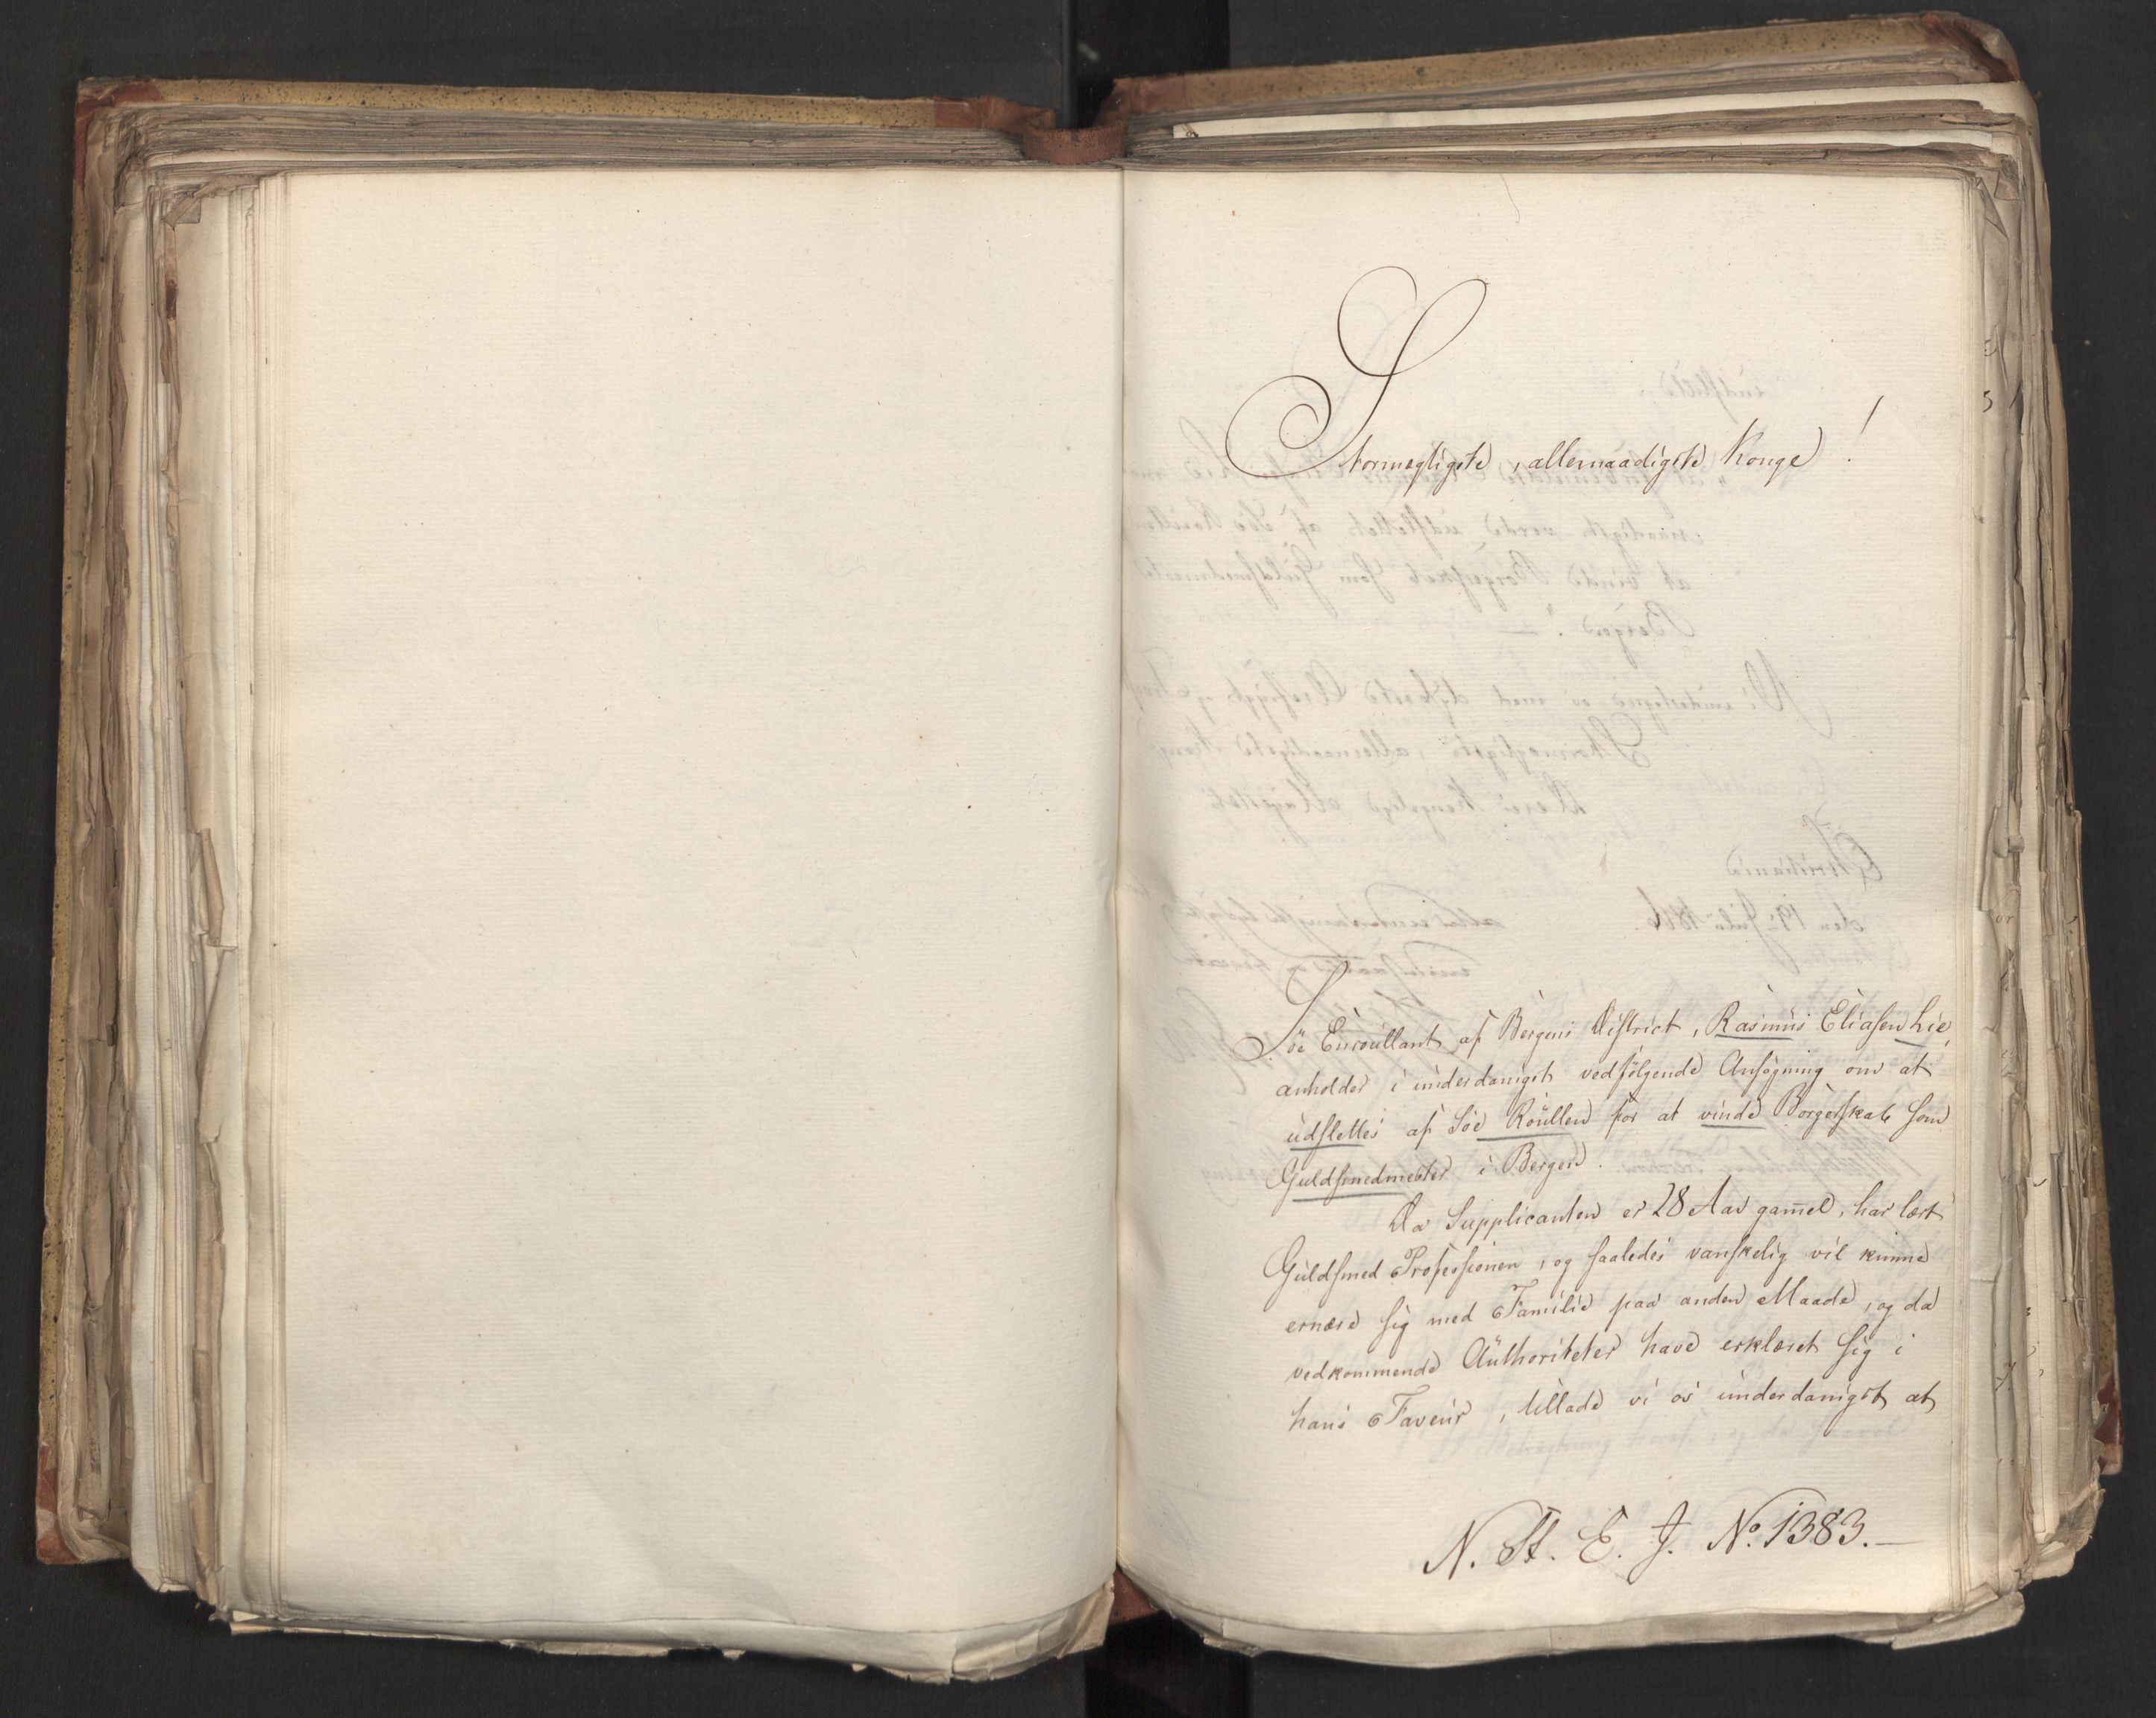 Stormægtigste, allernaadigste Konge!
Söe Enroullant af Bergens District, Rasmus Eliasen Lie,
anholder i underdanigst vedfölgende Ansögning om at
udslettes af Söe Roullen for at vinde Borgerskab som
Guldsmedmester i Bergen.
Da Supplicanten er 28 Aar gam̅el, har lært
Guldsmed Professionen, og saaledes vanskelig vil kunne
ernære sig med Familie paa anden Maade, og da
vedkommende Authoriteter have erklæret sig i
hans Faveur, tillade vi os underdanigst at
N. St. E. J. No. 1383.—